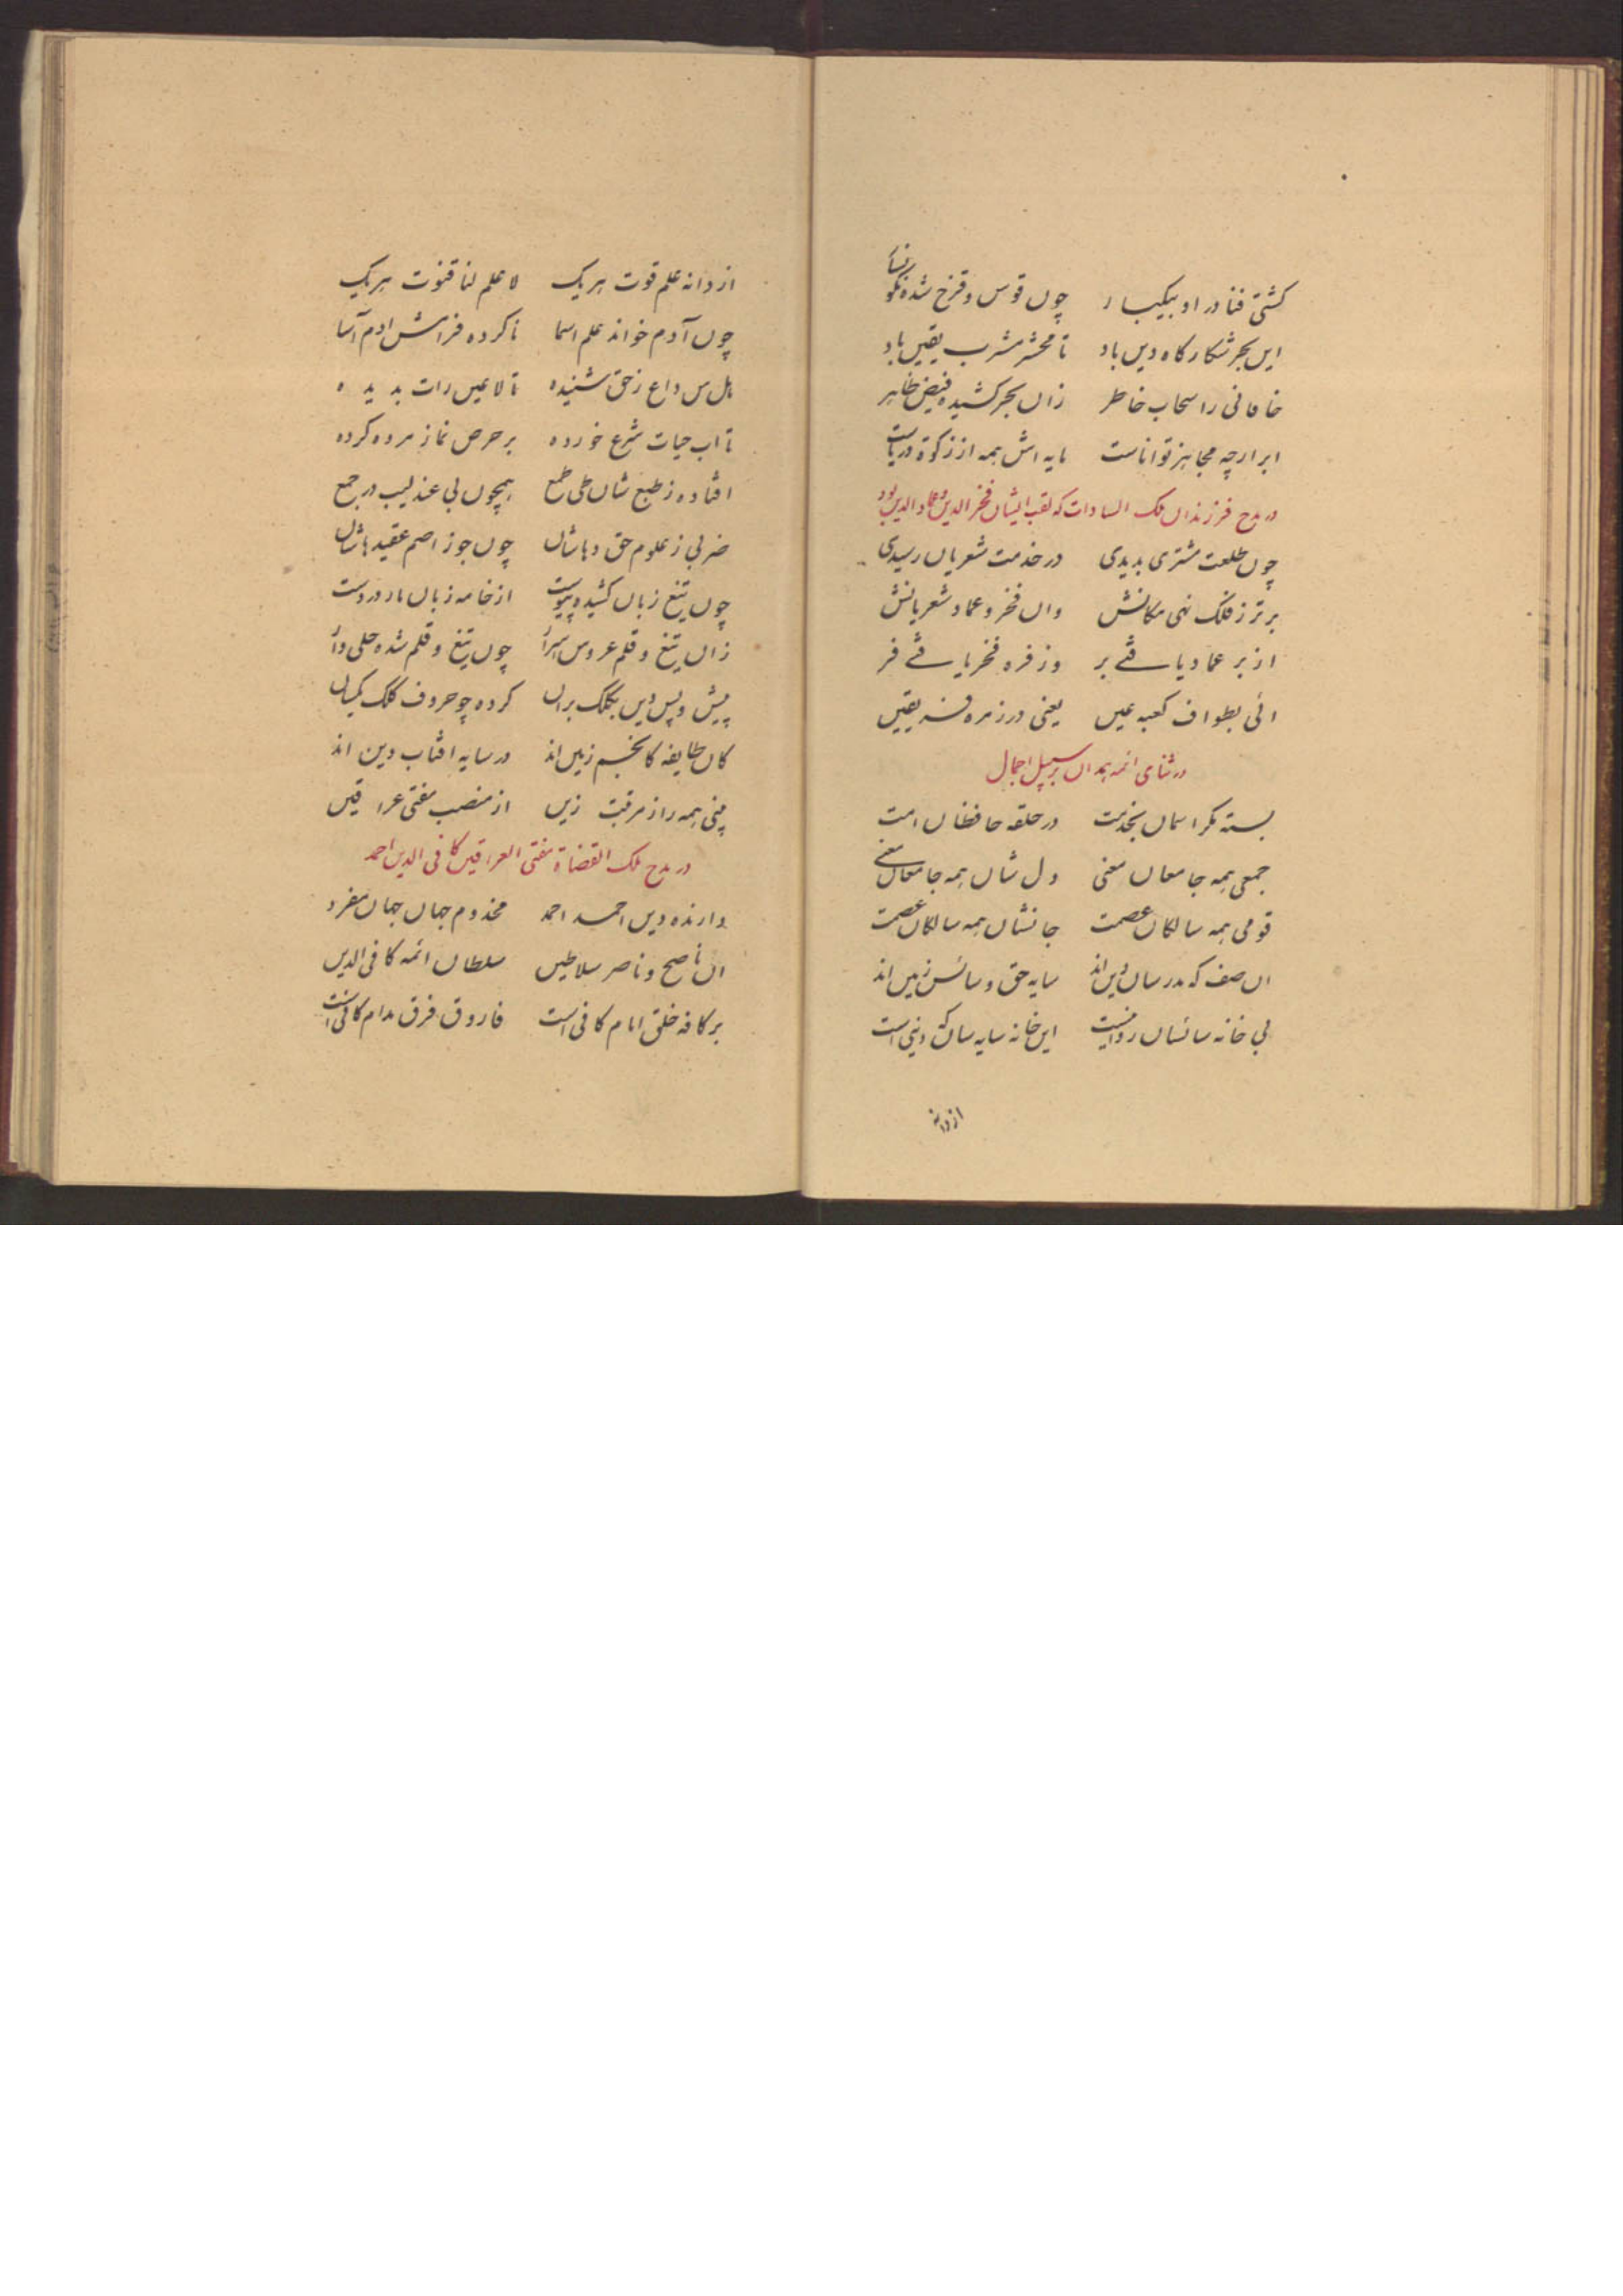 کشتی فنا در او بیکبار چوں قوس وقزح شده نگوسار
ایں بحر شکار کاه دیں باد تا محشر مشرب یقیں باد
خاقانی را سحاب خاطر زاں بحر کشیده فیض ظاہر
ابر ارچه مجاہز تواناست مایه اش ہمه از زکوة دریاست
در مدح فرزنداں ملک السادات که لقب ایشاں فخر الدین وعماد الدین بود
چوں طلعت مشتری بدیدی در خدمت شعریاں رسیدی
برتر ز فلک نہی مکانش واں فخر وعماد شعریانش
از بر عماد یافتے بر وز فره فخر یافتے فر
ائی بطواف کعبه عیں یعنی در زمره فریقیں
در ثنای ائمه ہمداں بر سبیل اجمال
بسته کمر اسماں بخدمت در حلقه حافظاں امت
جمعی ہمه جامعاں معنی دل شاں ہمه جامعاں معنے
قومی ہمه سالکاں عصمت جانشاں ہمه سالکاں عصمت
اں صف که مدرساں دیں اند سایه حق و سائس زمیں اند
بی خانه سائساں روا نیست ایں خانه سایه ساں که دینی است
از دانه
از دانه علم قوت ہریک لا علم لنا قنوت ہریک
چوں آدم خواند علم اسما ناکرده فرامش ادم آسا
بل من داع ز حق شنیده تا لا عیں رات بدیده
تا اب حیات شرع خورده بر حرص نماز مرده کرده
افتاده ز طبع شاں طی طمع ہمچوں بی عندلیب در جمع
ضربی ز علوم حق دہاشاں چوں جوز اصم عقیدہاشاں
چوں تیغ زباں کشیده پیوست از خامه زباں مار در دست
زاں تیغ و قلم عروس اسرار چوں تیغ و قلم شده حلی دار
پیش و پس دیں بکلک براں کرده چو حروف کلک یکساں
کاں طایفه کانجم زمیں اند در سایه افتاب دین اند
بینی ہمه را ز مرقبت زیں از منصب مفتی عراقیں
در مدح ملک القضاة مفتی العراقیں کافی الدین احمد
دارنده دیں احمد احمد مخدوم جہاں جہاں مفرد
اں ناصح و ناصر سلاطیں سلطاں ائمه کافی الدیں
بر کافه خلق امام کافی است فاروق فرق مدام کافی است